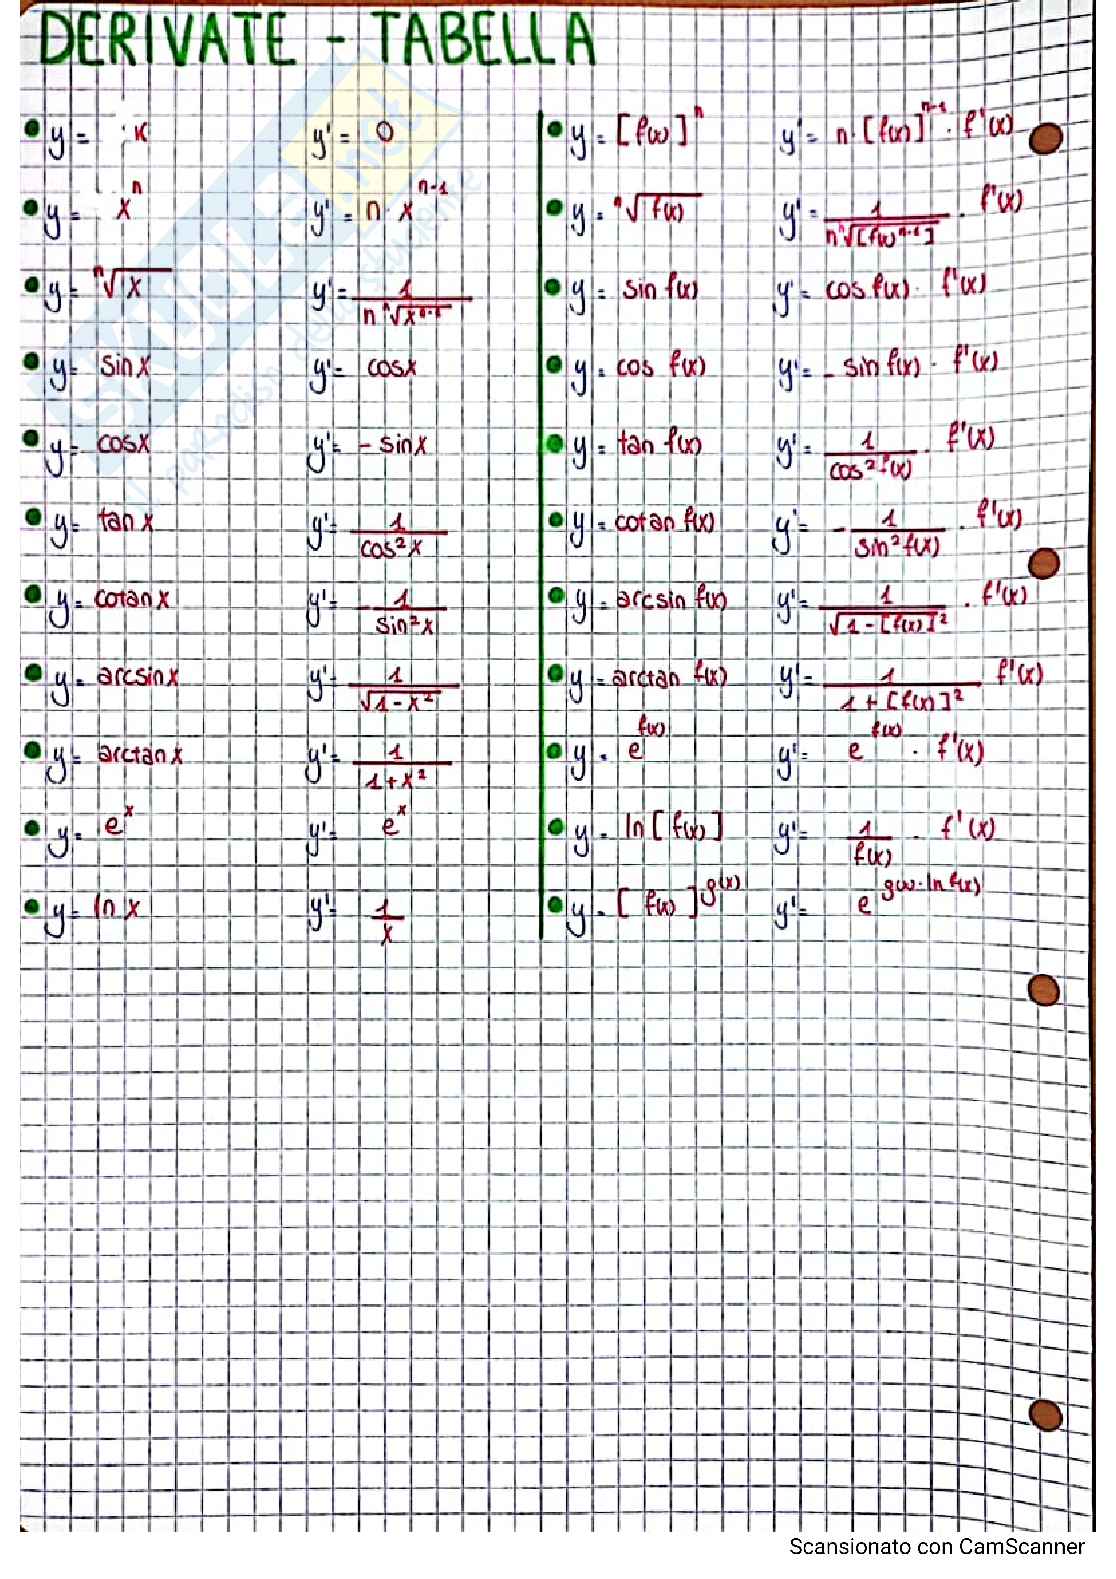 DERIVATE - TABELLA
y = k    y' = 0
y = x^n    y' = n · x^(n-1)
y = ⁿ√x    y' = 1/(n ⁿ√x^(n-1))
y = sin x    y' = cos x
y = cos x    y' = - sin x
y = tan x    y' = 1/cos² x
y = cotan x    y' = - 1/sin² x
y = arcsin x    y' = 1/√(1 - x²)
y = arctan x    y' = 1/(1 + x²)
y = e^x    y' = e^x
y = ln x    y' = 1/x
y = [f(x)]^n    y' = n · [f(x)]^(n-1) · f'(x)
y = ⁿ√f(x)    y' = 1/(n ⁿ√[f(x)^(n-1)]) · f'(x)
y = sin f(x)    y' = cos f(x) · f'(x)
y = cos f(x)    y' = - sin f(x) · f'(x)
y = tan f(x)    y' = 1/cos² f(x) · f'(x)
y = cotan f(x)    y' = - 1/sin² f(x) · f'(x)
y = arcsin f(x)    y' = 1/√(1 - [f(x)]²) · f'(x)
y = arctan f(x)    y' = 1/(1 + [f(x)]²) f'(x)
y = e^f(x)    y' = e^f(x) · f'(x)
y = ln [f(x)]    y' = 1/f(x) · f'(x)
y = [f(x)]^g(x)    y' = e^(g(x) · ln f(x))
SKUOLA.net
il paradiso dello studente
Scansionato con CamScanner